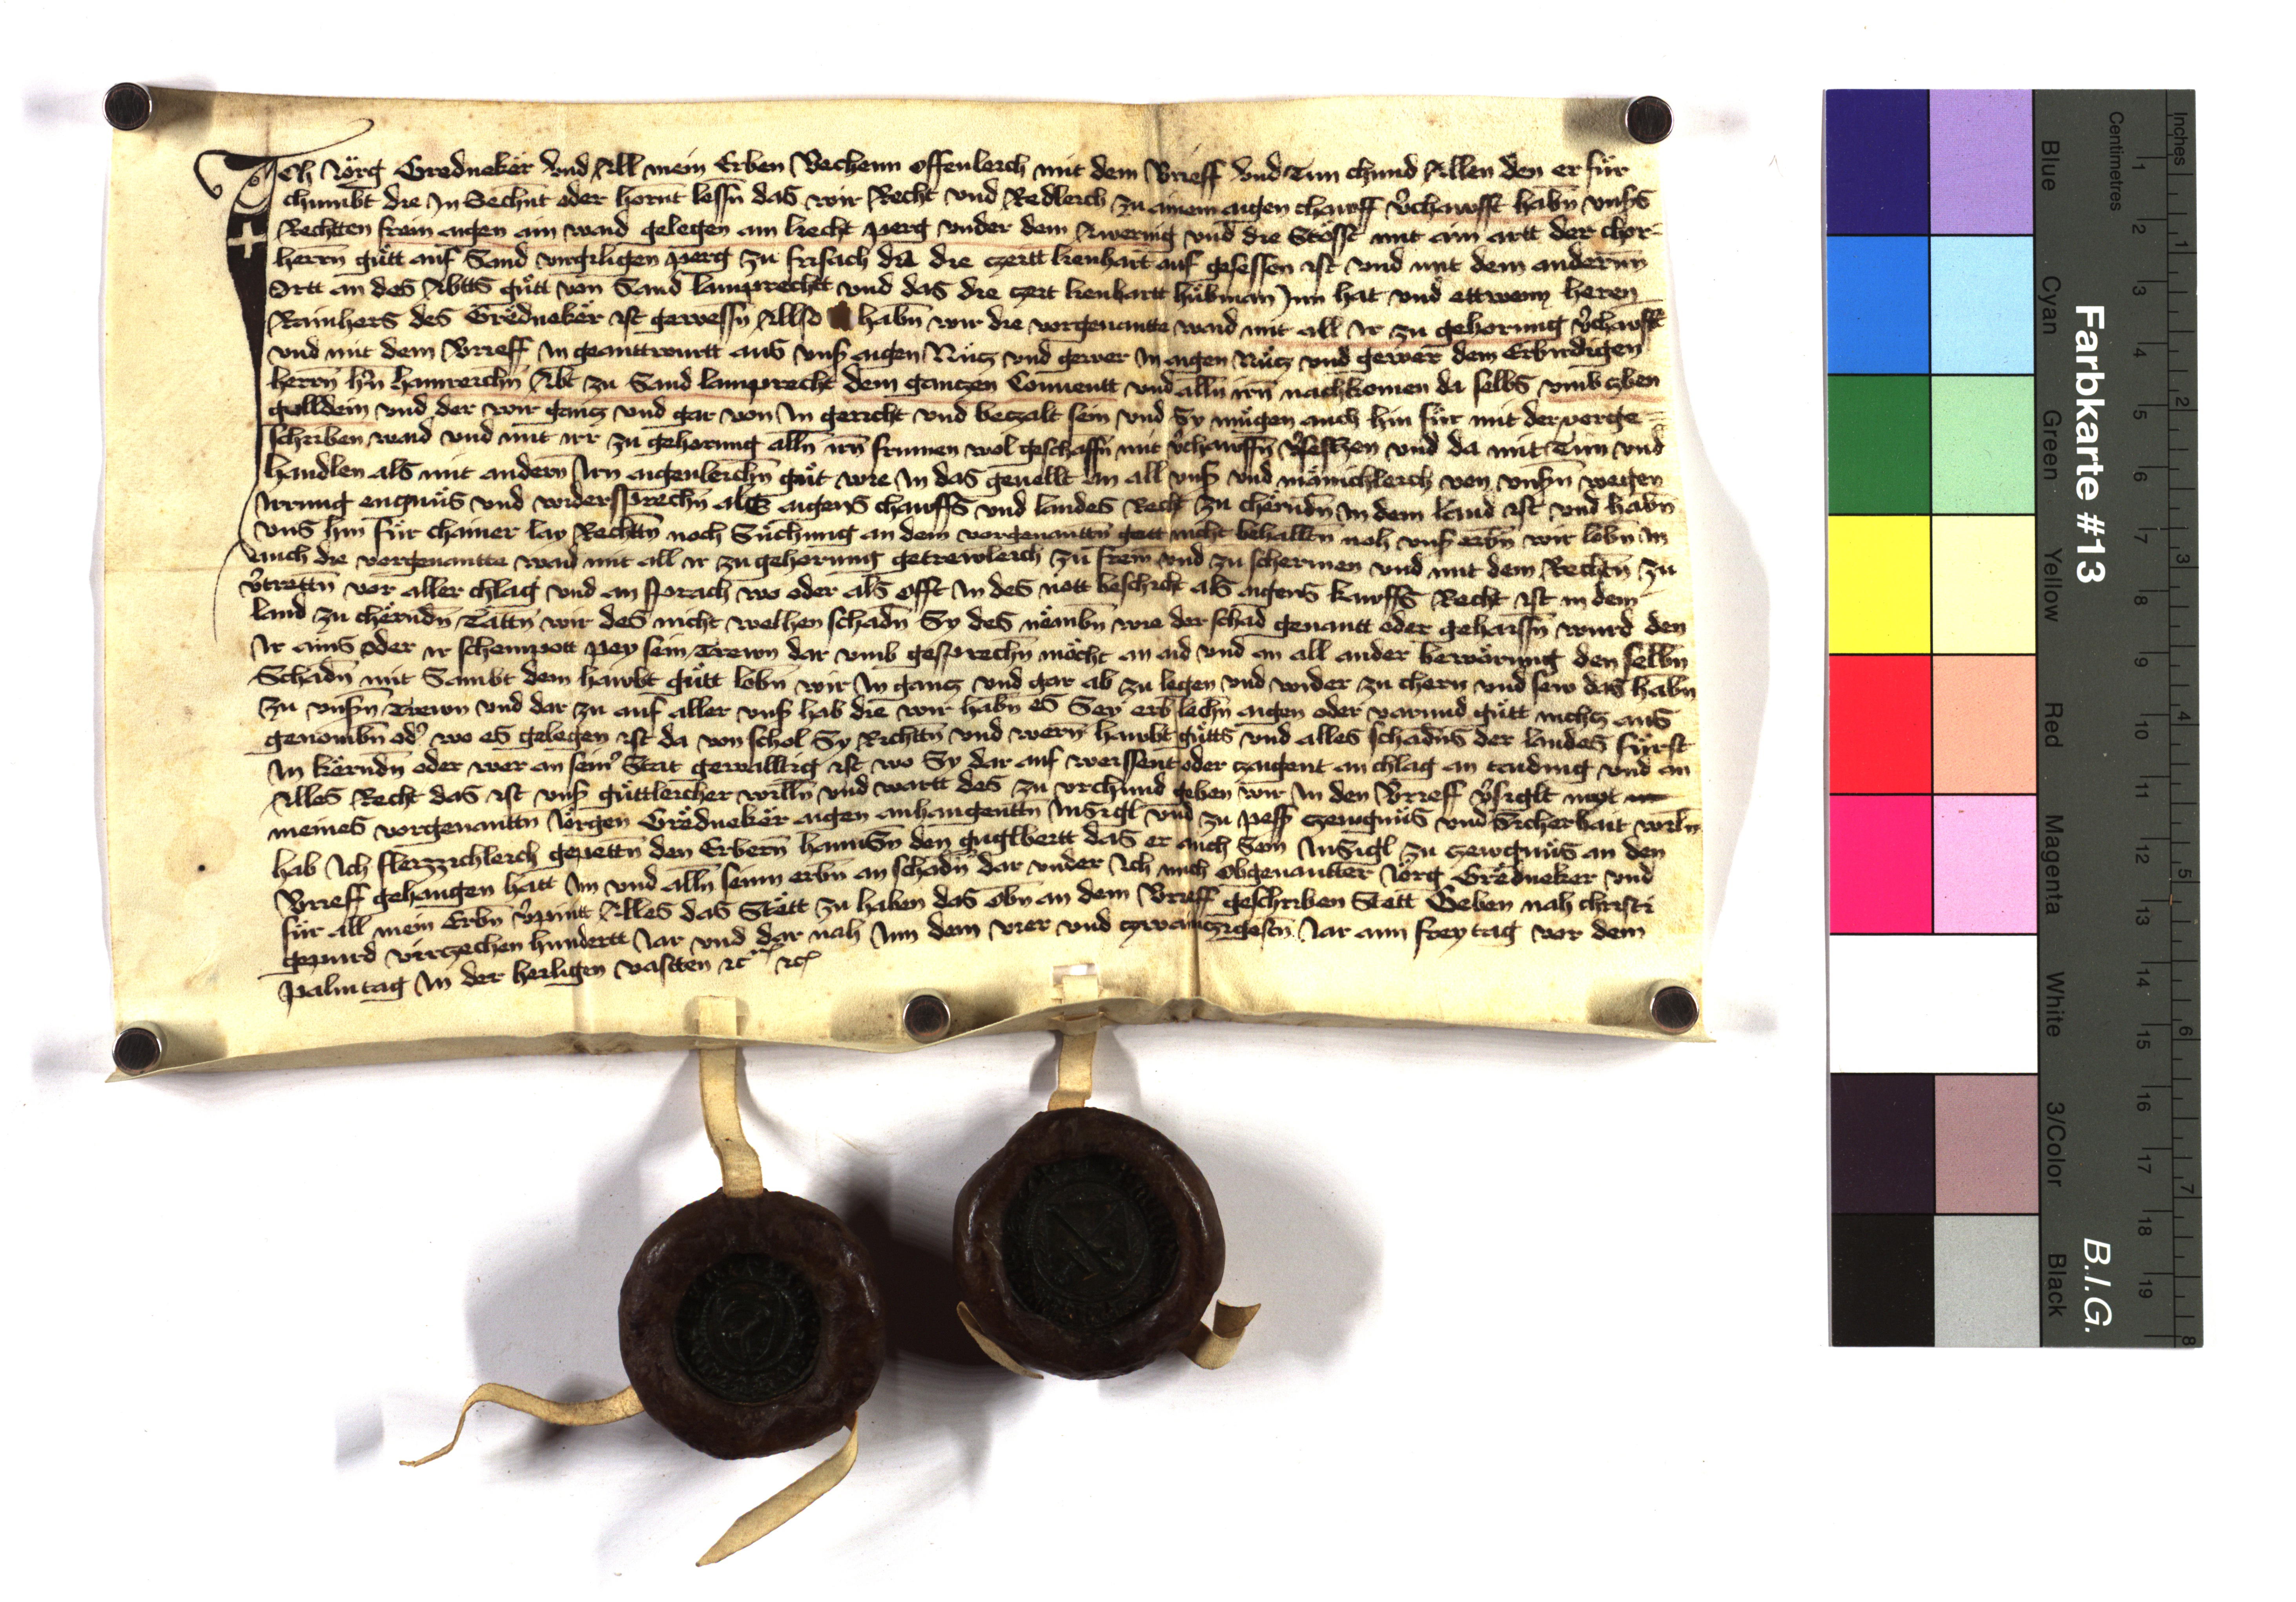 Ich Jörg Gredneker vnd All mein Erben Vechenn offenleich mit dem Brieff vnd Tun chund Allen den er für
chumbt die In Sechnt oder hörnt lessn das wir Recht vnd Redleich zu ainem aigen chawff v̓chawfft habn vnsˢ
Rechtten frein aigen ain waid gelegen am liecht perg vnder dem vnd die Stösst mit aim artt der chor-
herrn gütt auf Sand virgiligen perg zu frisach da die czeitt lienhart auf gesessen ist vnd mit dem anderm
Ortt an des Abtts gütt von Sand lamprechtt vnd das die czeit lienhartt hübman Inn hat vnd ettwenn heren
Rainhers des Gredneker ist gewessn Allso habn wir die vorgenantte waid mit all Ir zu gehorung v̓chawfft
vnd mit dem Brieff In geanttwurtt aus vnsˢ aigen Nücz vnd gewer In aigen Nücz vnd gewer dem Erbirdigen
herrn hn̄ hainreichn Abt zu Sand lamprecht dem ganczen Conuentt vnd alln irn nachkomen da selbs vmb czben
gulldein vnd der wir gancz vnd gar von In gericht vnd beczalt sein vnd Sy mügen auch hin für mit der vorge-
schriben waid vnd mit irr zu gehorung alln irn frumen wol geschaffn mit v̓chawffn v̓seczen vnd da mit Tun vnd
handlen als mit andern Irn aigenleichn güt wie In das geuellt an all vnsˢ vnd mänichleich von vnsn̄ wegen
Irrung engnüs vnd widersprechn als aigens chawffs vnd landes Recht zu cherndn In dem land ist vnd habn
vns hin für chainer lay Rechtn noch Süchung an dem vorgenanttn gutt nicht behalltn noh vnsˢ erbn wir lobn In
auch die vorgenantte waid mit all ir zu gehorung getrewleich zu frein vnd zu schermen vnd mit dem Rechtn zu
v̓trettn vor aller chlag vnd an sprach wo oder als offt In des nott beschicht als aigens kawffs Recht ist in dem
land zu cherndn Tättn wir des nicht welhen schadn Sy des nembn wie der schad genantt oder gehaissn wurd den
Ir ains oder ir schempott pey sein Trewn dar vmb gesprechn möcht an aid vnd an all ander bewärung den selbn
Schadn mit Sambt dem hawbt gütt lobn wir In gancz vnd gar ab zu legen vnd wider zu chern vnd sew das habn
zu vnsn̄ Trewn vnd dar zu auf aller vnsˢ hab die wir habn es Sey erb lechn aigen oder varund gütt nichcz aus
genombn od̓ wo es gelegen ist da von schol Sy Richttn vnd wern hawbt gütts vnd alles schadns der landes fürst
In kerndn oder wer an sein̓ Stat gewalltig ist wo Sy dar auf weissent oder czaigent an chlag an taiding vnd an
Alles Recht das ist vnsˢ güttleicher willn vnd wartt des zu vrchund geben wir In den Brieff v̓siglt mit
meines vorgenanttn Jörgen Gredneker aigen anhangenttn Insigl vnd zu pesserˢ czewgnüs vnd Sicherhait willn
hab Ich fleizzichleich gepettn den Erbern hannsn den guglbertt das er auch Sein Insigl zu czewgnüs an den
Brieff gehangen hatt Im vnd alln seinn erbn an schadn dar vnder Ich mich obgenantter Jörg Gredneker vnd
für all mein Erbn v̓pintt Alles das Stätt zu haben das obn an dem Brieff geschriben Stett Geben nah christi
gepurd virczechen hundertt Jar vnd dar nah Inn dem vier vnd czwainczigestn Jar ann freytag vor dem
palmtag In der heiligen vastten ꝛc ꝛc
Farbkarte #13
B.I.G.
Inches
Centimetres
1 2 3 4 5 6 7 8 9 10 11 12 13 14 15 16 17 18 19
1 2 3 4 5 6 7 8
Blue
Cyan
Green
Yellow
Red
Magenta
White
3/Color
Black